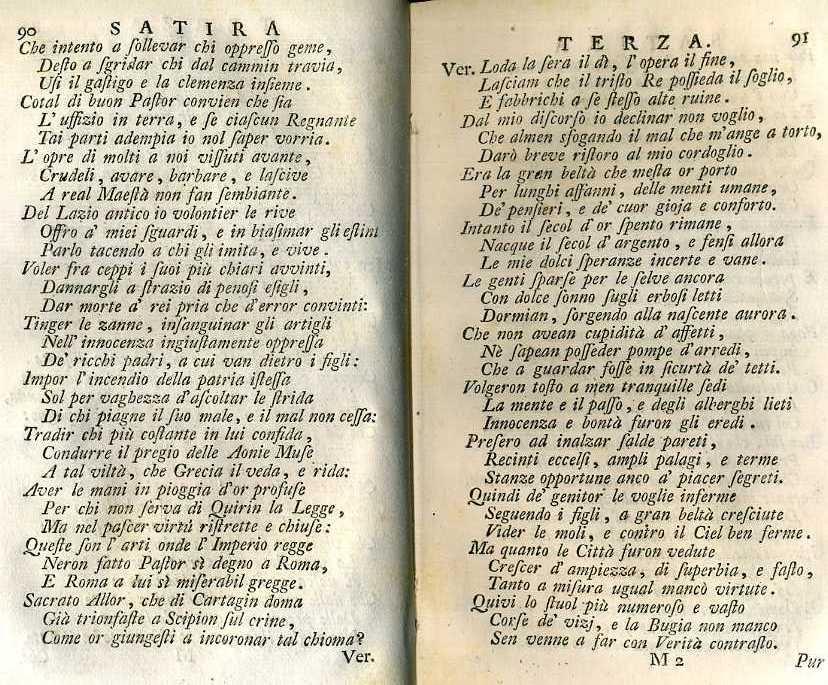 90 SATIRA
Che intento a ſollevar chi oppreſſo geme,
Deſto a ſgridar chi dal cammin travia,
Uſi il gaſtigo e la clemenza inſieme.
Cotal di buon Paſtor convien che ſia
L' uffizio in terra, e ſe ciaſcun Regnante
Tai parti adempia io nol ſaper vorria.
L' opre di molti a noi viſſuti avante,
Crudeli, avare, barbare, e laſcive
A real Maeſtà non fan ſembiante.
Del Lazio antico io volontier le rive
Offro a' miei ſguardi, e in biaſimar gli eſtini
Parlo tacendo a chi gli imita, e vive.
Voler fra ceppi i ſuoi più chiari avvinti,
Dannargli a ſtrazio di penoſi eſigli,
Dar morte a' rei pria che d'error convinti:
Tinger le zanne, inſanguinar gli artigli
Nell' innocenza ingiuſtamente oppreſſa
De' ricchi padri, a cui van dietro i figli:
Impor l'incendio della patria iſteſſa
Sol per vaghezza d'aſcoltar le ſtrida
Di chi piagne il ſuo male, e il mal non ceſſa:
Tradir chi più coſtante in lui confida,
Condurre il pregio delle Aonie Muſe
A tal viltà, che Grecia il veda, e rida:
Aver le mani in pioggia d'or profuſe
Per chi non ſerva di Quirin la Legge,
Ma nel paſcer virtú riſtrette e chiuſe:
Queſte ſon l'arti onde l'Imperio regge
Neron fatto Paſtor sì degno a Roma,
E Roma a lui sì miſerabil gregge.
Sacrato Allor, che di Cartagin doma
Già trionfaſte a Scipion ſul crine,
Come or giungeſti a incoronar tal chioma?
Ver.
TERZA. 91
Ver. Loda la ſera il dì, l' opera il fine,
Laſciam che il triſto Re poſſieda il ſoglio,
E fabbrichi a ſe ſteſſo alte ruine.
Dal mio diſcorſo io declinar non voglio,
Che almen sfogando il mal che m'ange a torto,
Darò breve riſtoro al mio cordoglio.
Era la gran beltà che meſta or porto
Per lunghi affanni, delle menti umane,
De' penſieri, e de' cuor gioja e conforto.
Intanto il ſecol d'or ſpento rimane,
Nacque il ſecol d'argento, e fenſi allora
Le mie dolci ſperanze incerte e vane.
Le genti ſparſe per le ſelve ancora
Con dolce ſonno ſugli erboſi letti
Dormian, ſorgendo alla naſcente aurora.
Che non avean cupidità d'affetti,
Nè ſapean poſſeder pompe d'arredi,
Che a guardar foſſe in ſicurtà de' tetti.
Volgeron toſto a men tranquille ſedi
La mente e il paſſo, e degli alberghi lieti
Innocenza e bontà furon gli eredi.
Preſero ad inalzar ſalde pareti,
Recinti eccelſi, ampli palagi, e terme
Stanze opportune anco a' piacer ſegreti.
Quindi de' genitor le voglie inferme
Seguendo i figli, a gran beltà creſciute
Vider le moli, e contro il Ciel ben ferme.
Ma quanto le Città furon vedute
Creſcer d'ampiezza, di ſuperbia, e faſto,
Tanto a miſura ugual mancò virtute.
Quivi lo ſtuol più numeroſo e vaſto
Corſe de' vizj, e la Bugia non manco
Sen venne a far con Verità contraſto.
M 2 Pur